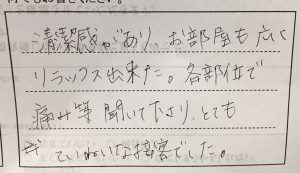 清潔感があり、お部屋も広く
リラックス出来た。各部位で
痛み等聞いて下さり、とても
ていねいな接客でした。